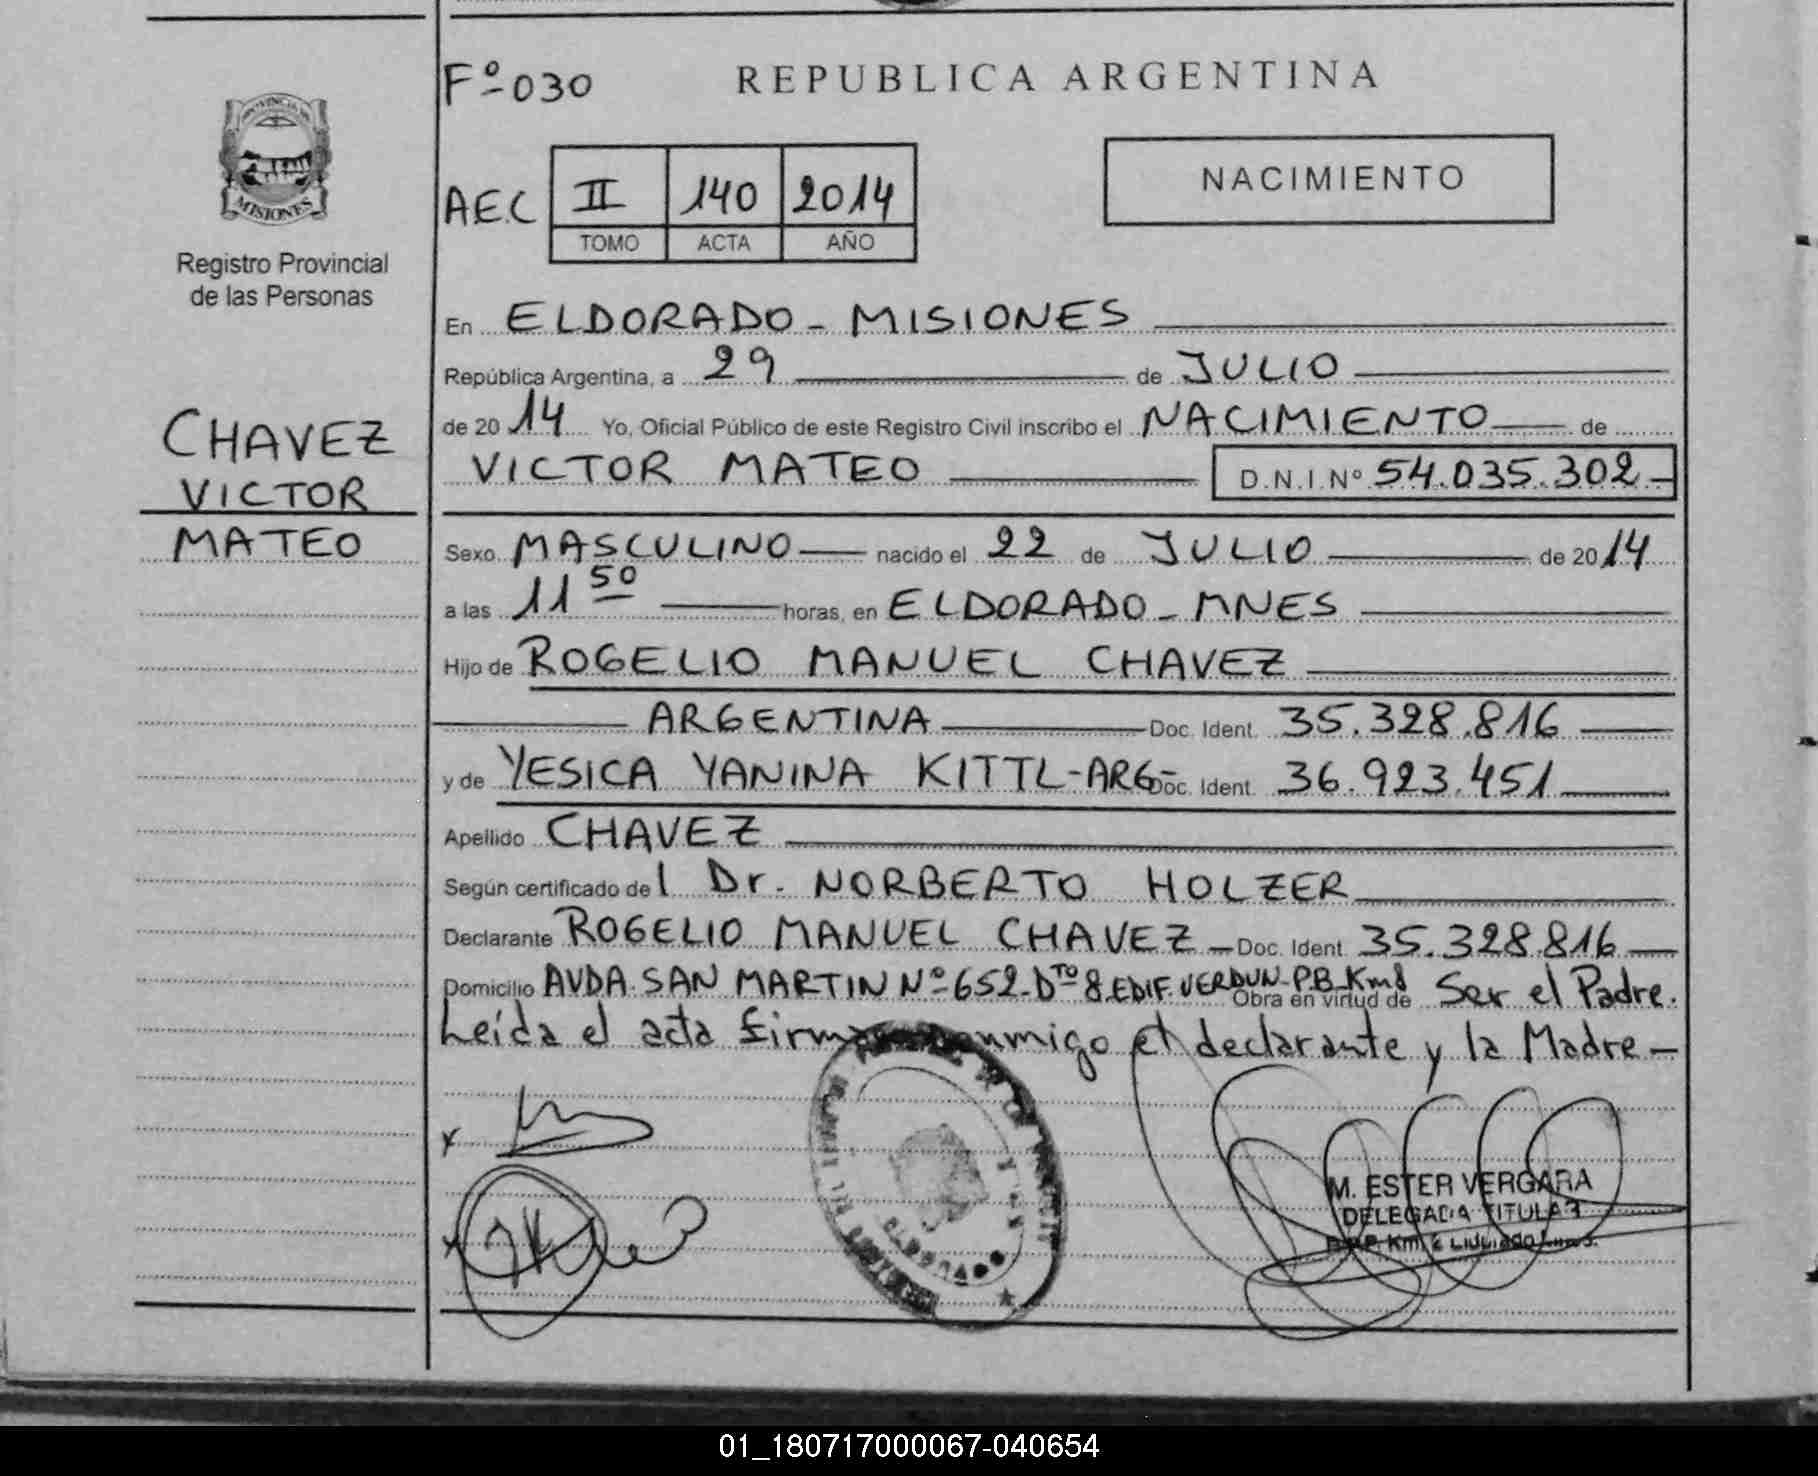 Fº 030
REPUBLICA ARGENTINA
PROVINCIA DE
MISIONES
Registro Provincial
de las Personas
AEC II 140 2014
TOMO ACTA AÑO
NACIMIENTO
En ELDORADO - MISIONES
República Argentina, a 29 de JULIO
de 2014 Yo, Oficial Público de este Registro Civil inscribo el NACIMIENTO de
VICTOR MATEO D.N.I. Nº 54.035.302
CHAVEZ
VICTOR
MATEO
Sexo MASCULINO nacido el 22 de JULIO de 2014
a las 11 50 horas, en ELDORADO - MNES
Hijo de ROGELIO MANUEL CHAVEZ
ARGENTINA Doc. Ident. 35.328.816
y de YESICA YANINA KITTL - ARG - Doc. Ident. 36.923.451
Apellido CHAVEZ
Según certificado del Dr. NORBERTO HOLZER
Declarante ROGELIO MANUEL CHAVEZ - Doc. Ident. 35.328.816
Domicilio AVDA. SAN MARTIN Nº 652 - Dto 8 EDIF. VERDUN - P.B. Km8 Obra en virtud de Ser el Padre.
Leída el acta conmigo el declarante y la Madre -
x
x
M. ESTER VERGARA
DELEGADA TITULAR
01_180717000067-040654